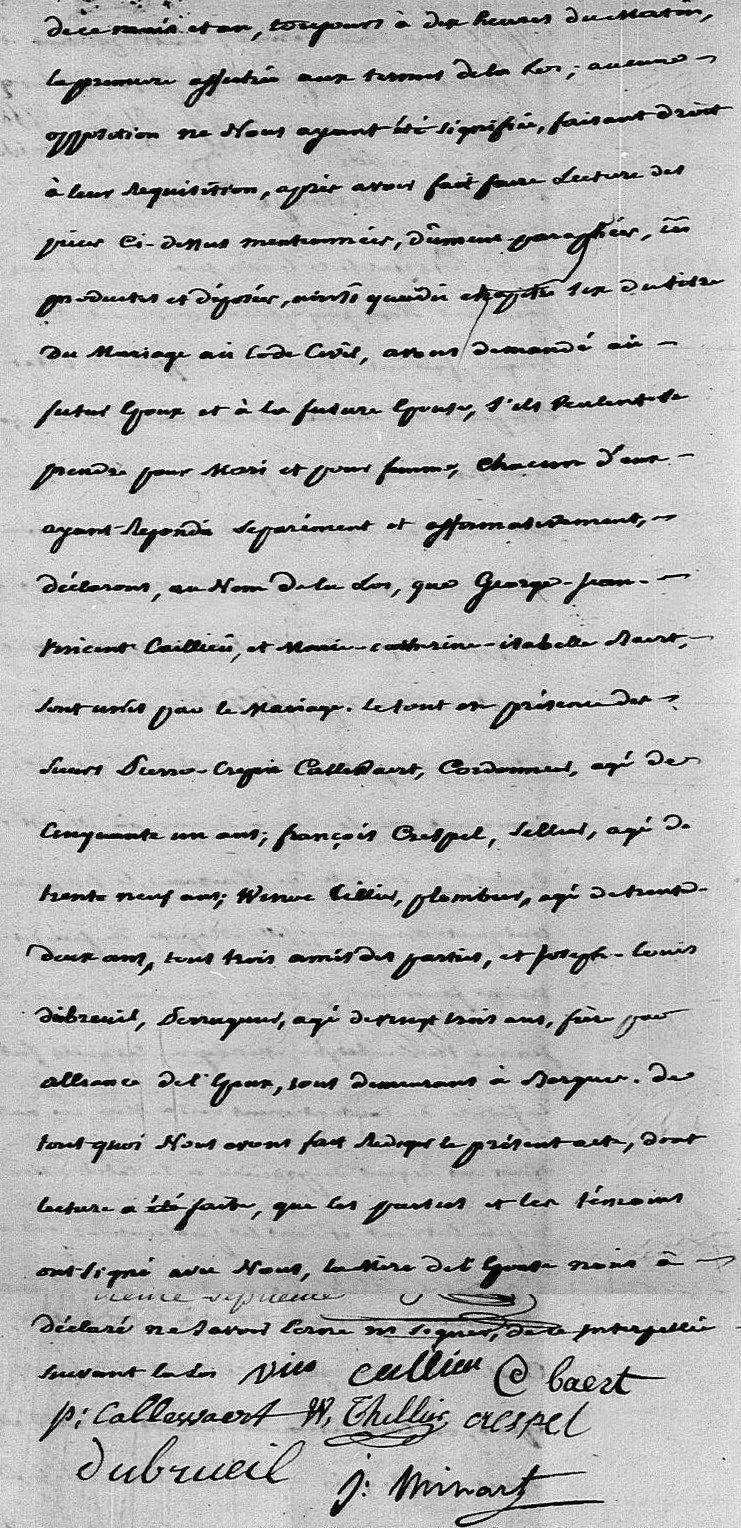 de ce mois et an, toujours à dix heures du Matin,
la premiere affichée aux termes de la Loi; aucune
opposition ne Nous ayant été signifiée, faisant droit
à leur Requisition, après avoir fait faire Lecture des
pièces Ci-dessus mentionnées, dûment paraphées, 
produites et déposées, ainsi que du chapitre six du titre
du Mariage au Code Civil, avons demandé au
futur Epoux et à la future Epouse, s'ils Veulent se
prendre pour Mari et pour femme, Chacun d'eux
ayant Repondu Separément et affirmativement,
déclarons, au Nom de la Loi, que George-Jean-
Vincent Caillieu, et Marie-catherine-isabelle Baert,
sont unis par le Mariage. le tout en présence des
Sieurs Pierre-Crepin Callewaert, Cordonnier, agé de
Cinquante un ans; françois Crespel, Sellier, agé de
trente neuf ans; Winoc Tillier, plombier, agé de trente
deux ans, tous trois amis des parties, et Joseph-Louis
dubreuil, Perruquier, agé de vingt trois ans, frère par
alliance de l'Epoux, tous demeurans à Bergues. de
tout quoi Nous avons fait Rediger le présent acte, dont
lecture a été faite, que les parties et les témoins
ont signé avec Nous, la Mère de l'Epouse nous a
déclaré ne savoir Ecrire ni signer, de ce Interpellée
suivant la Loi vin caillieu C baert
p: Callewaert W. Thellier crespel
dubrueil j: Minart